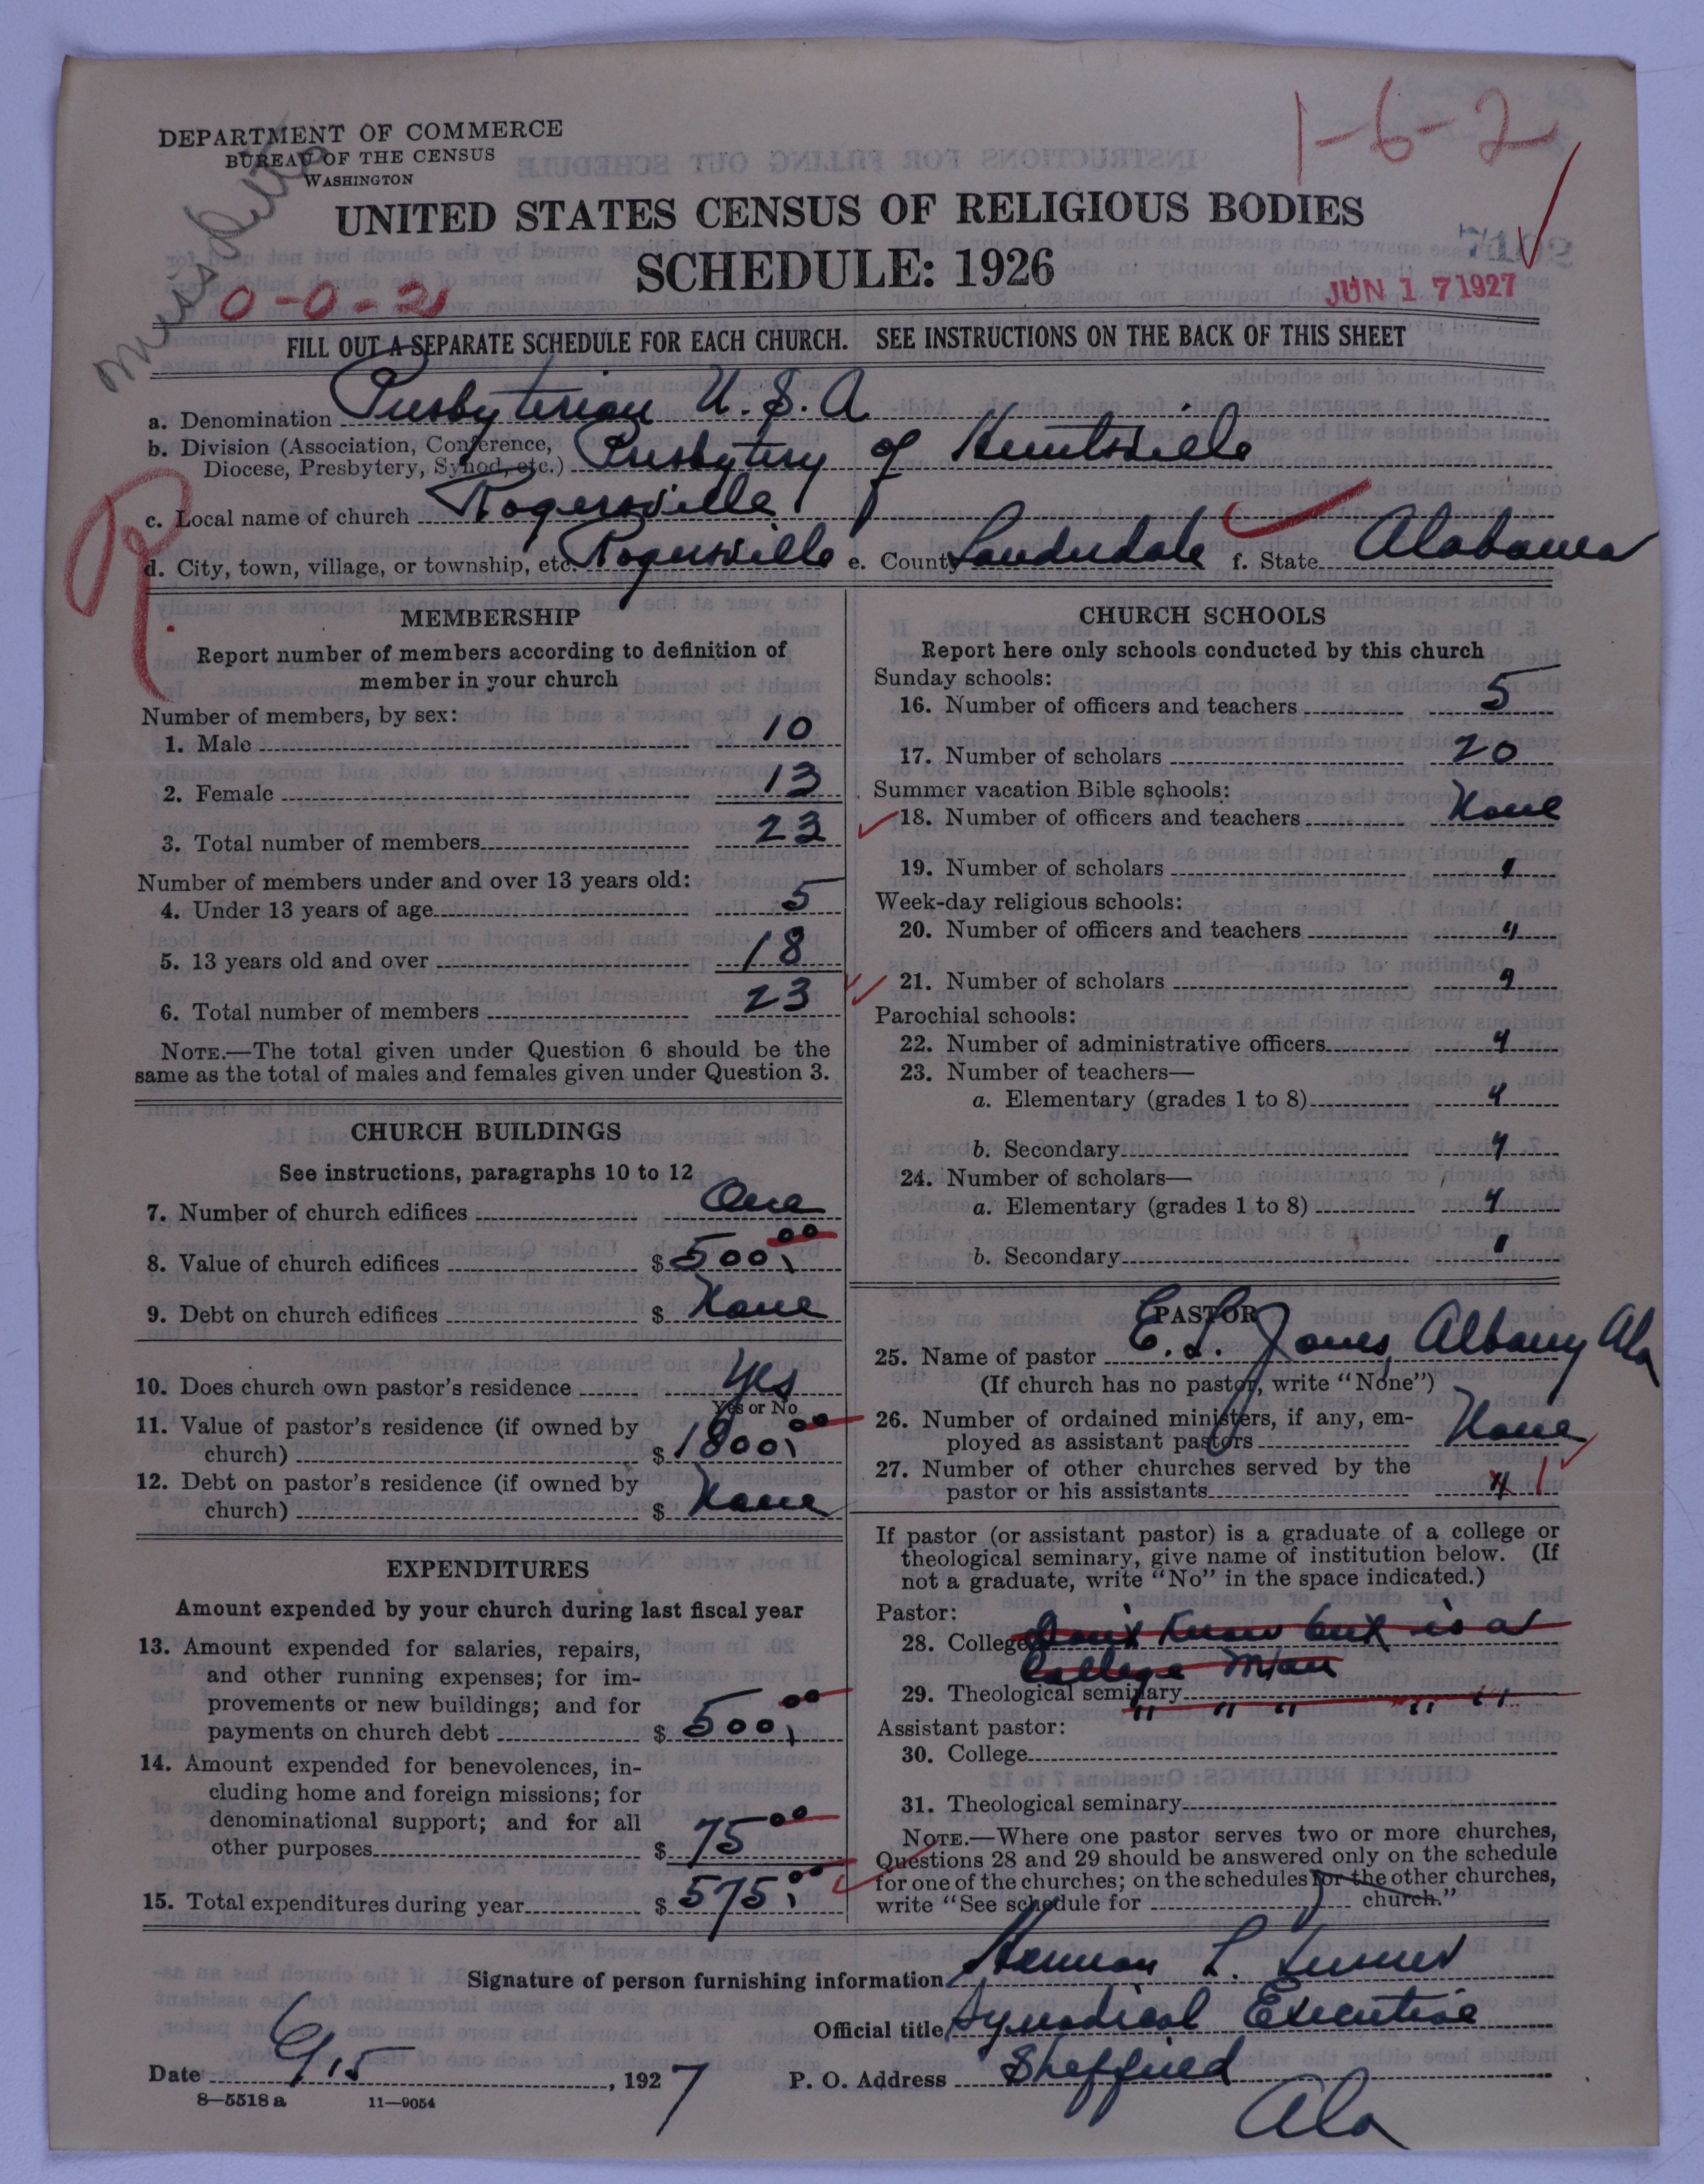 DEPARTMENT OF COMMERCE
BUREAU OF THE CENSUS
WASHINGTON
1-6-2
UNITED STATES CENSUS OF RELIGIOUS BODIES
SCHEDULE: 1926
0-0-21
JUN 17 1927
FILL OUT A SEPARATE SCHEDULE FOR EACH CHURCH. SEE INSTRUCTIONS ON THE BACK OF THIS SHEET
a. Denomination Presbyterian U.S.A
b. Division (Association, Conference,
Diocese, Presbytery, Synod, etc.) Presbytery of Huntsville
c. Local name of church Rogersville
d. City, town, village, or township, etc. Rogersville e. County Lauderdale f. State Alabama
R.
MEMBERSHIP
Report number of members according to definition of
member in your church
Number of members, by sex:
1. Male 10
2. Female 13
3. Total number of members 23
Number of members under and over 13 years old:
4. Under 13 years of age 5
5. 13 years old and over 18
6. Total number of members 23
NOTE.—The total given under Question 6 should be the
same as the total of males and females given under Question 3.
CHURCH BUILDINGS
See instructions, paragraphs 10 to 12
7. Number of church edifices One
8. Value of church edifices $ 500,00
9. Debt on church edifices $ None
10. Does church own pastor's residence Yes
Yes or No
11. Value of pastor's residence (if owned by
church) $ 1800,00
12. Debt on pastor's residence (if owned by
church) $ None
EXPENDITURES
Amount expended by your church during last fiscal year
13. Amount expended for salaries, repairs,
and other running expenses; for im-
provements or new buildings; and for
payments on church debt $ 500,00
14. Amount expended for benevolences, in-
cluding home and foreign missions; for
denominational support; and for all
other purposes $ 75 00
15. Total expenditures during year $ 575,00
CHURCH SCHOOLS
Report here only schools conducted by this church
Sunday schools:
16. Number of officers and teachers 5
17. Number of scholars 20
Summer vacation Bible schools:
18. Number of officers and teachers None
19. Number of scholars "
Week-day religious schools:
20. Number of officers and teachers "
21. Number of scholars "
Parochial schools:
22. Number of administrative officers "
23. Number of teachers—
a. Elementary (grades 1 to 8) "
b. Secondary "
24. Number of scholars—
a. Elementary (grades 1 to 8) "
b. Secondary "
PASTOR
25. Name of pastor E. L. Jones, Albany Ala
(If church has no pastor, write "None")
26. Number of ordained ministers, if any, em-
ployed as assistant pastors None
27. Number of other churches served by the
pastor or his assistants 1
If pastor (or assistant pastor) is a graduate of a college or
theological seminary, give name of institution below. (If
not a graduate, write "No" in the space indicated.)
Pastor:
28. College Don't Know but is a
College Man
29. Theological seminary " " " " "
Assistant pastor:
30. College
31. Theological seminary
NOTE.—Where one pastor serves two or more churches,
Questions 28 and 29 should be answered only on the schedule
for one of the churches; on the schedules for the other churches,
write "See schedule for church."
Signature of person furnishing information Herman L. Turner
Official title Synodical Executive
Date 6/15, 1927 P. O. Address Sheffield
Ala
8—5518 a 11—9054